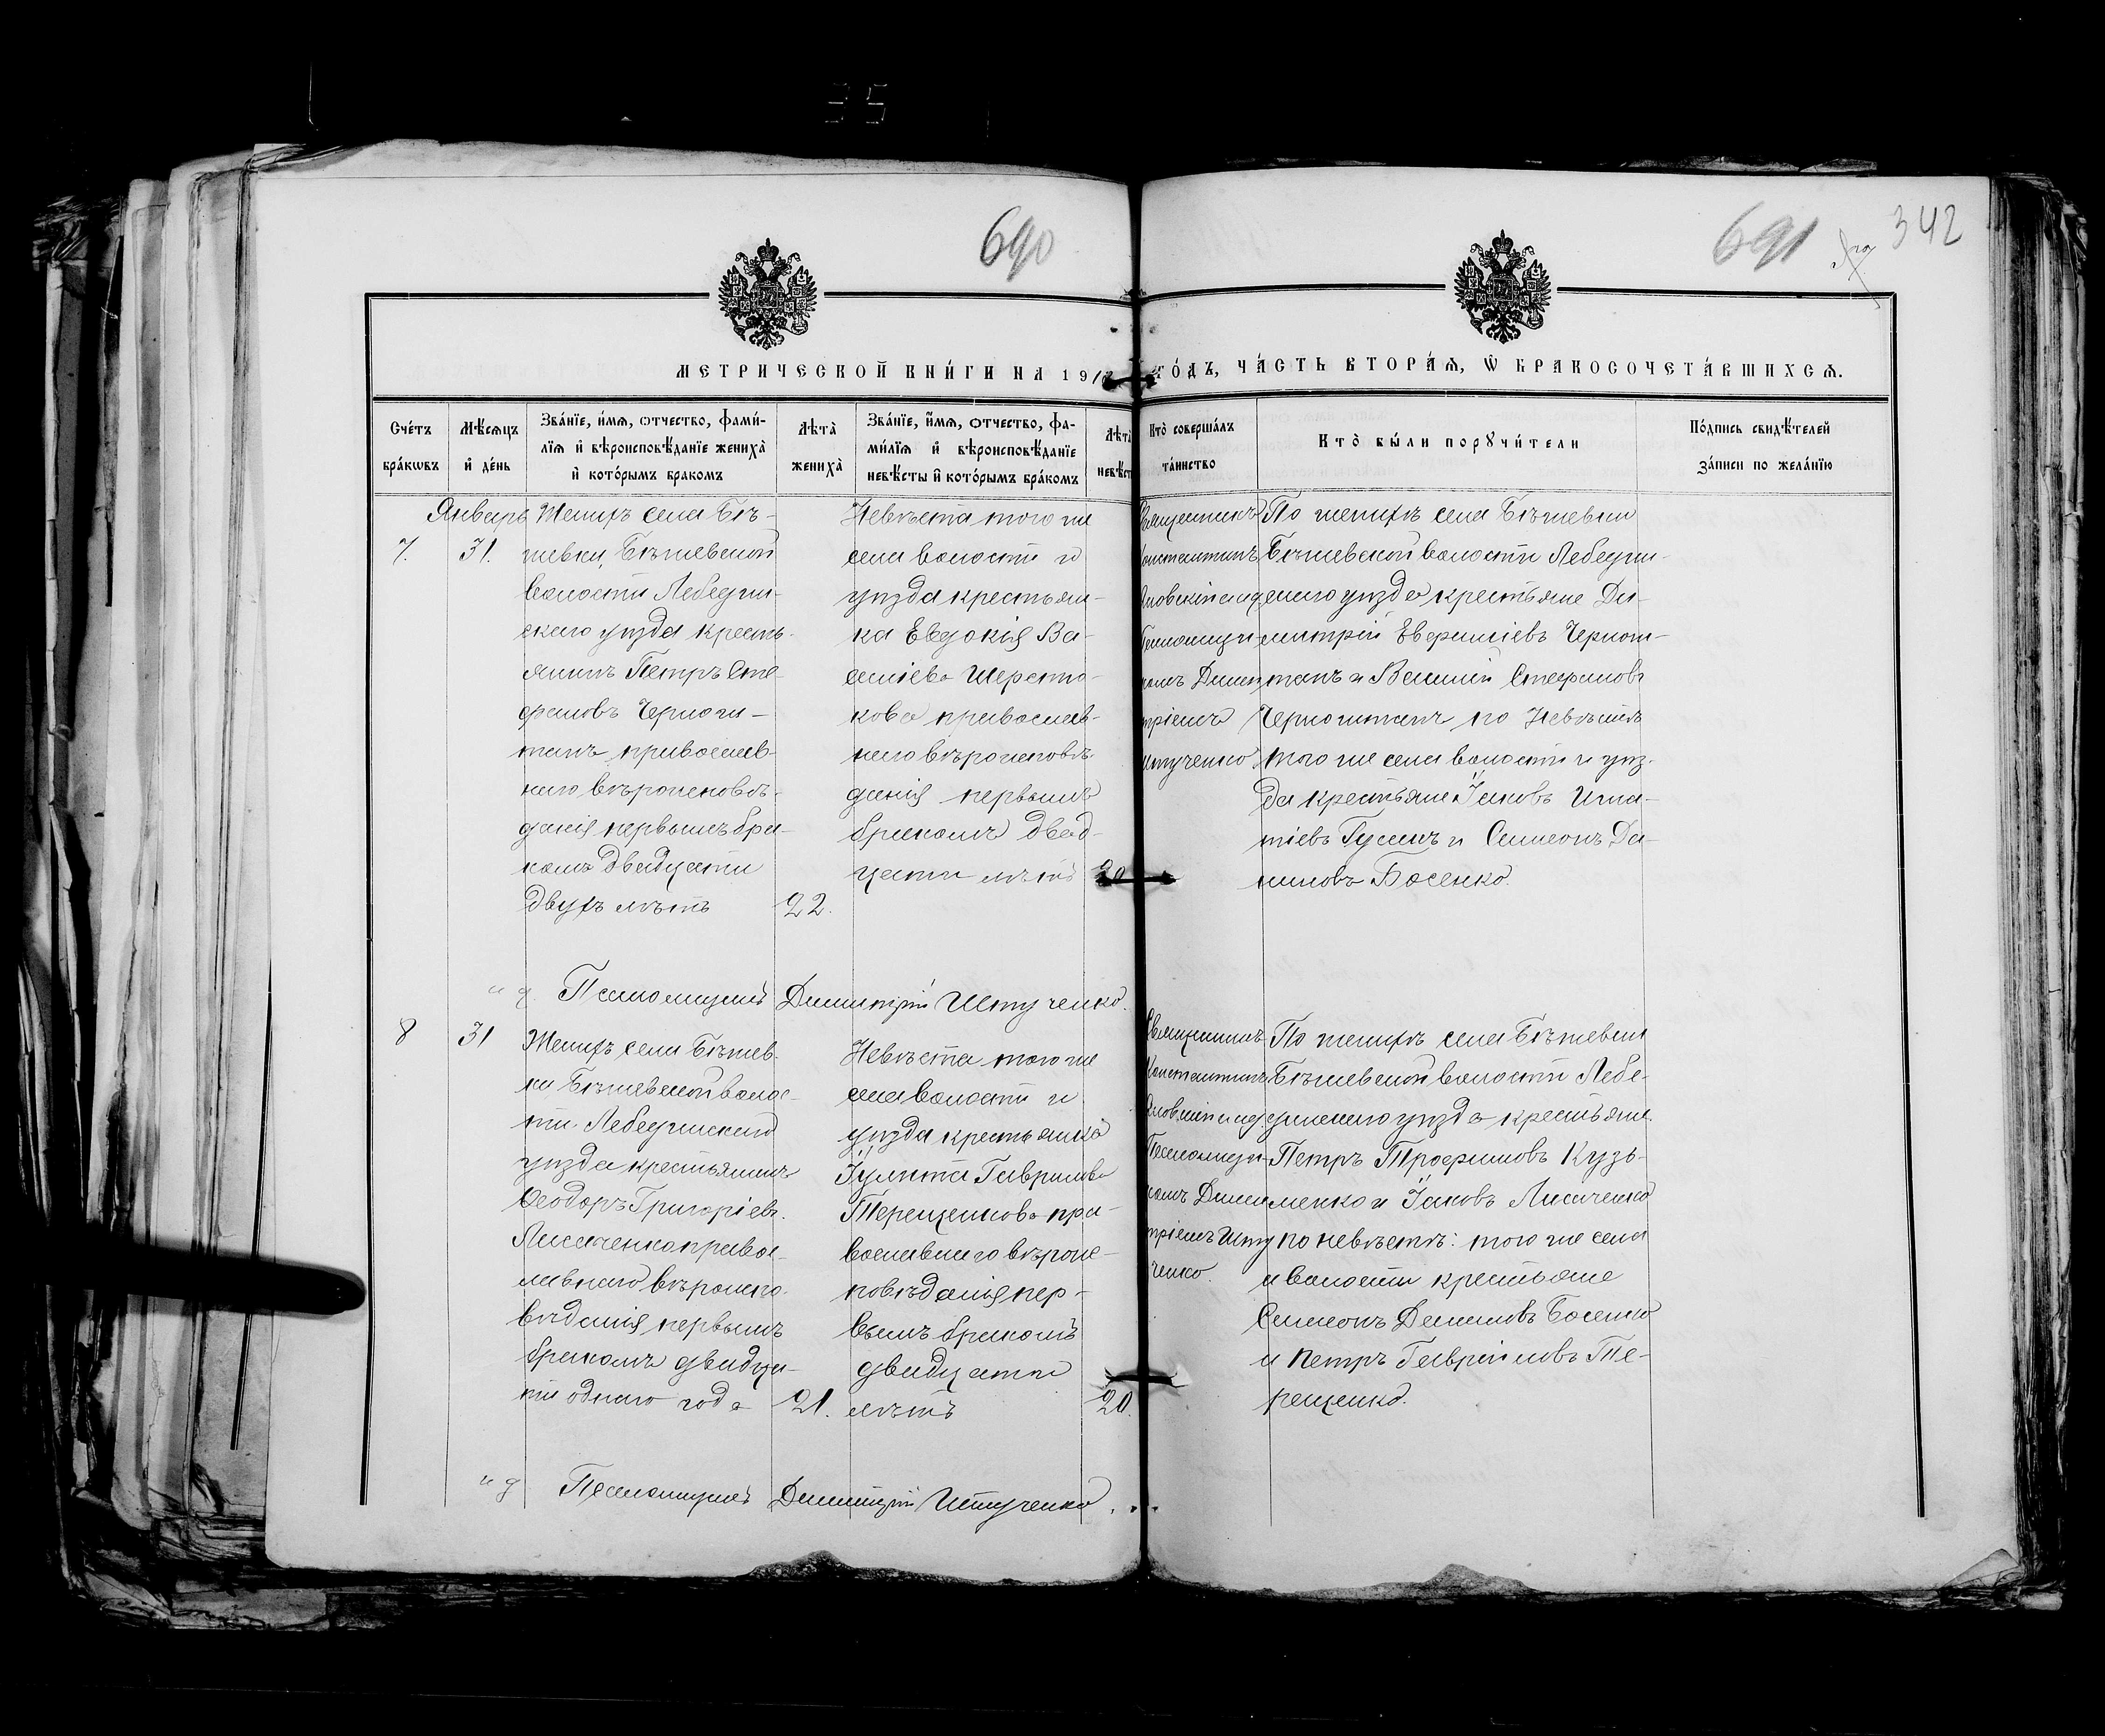 690
691
342
МЕТРИЧЕСКОЙ КНИ́ГИ НА 191
ГО́ДЪ, ЧА́СТЬ ВТОРА́Я, Ѡ БРАКОСОЧЕТА́ВШИХСЯ.
Сче́тъ бра́кωвъ
Мѣ́сяцъ и҆ де́нь
Зва́нїе, и҆́мя, ѻтчество, фами́-
лїя и҆ вѣроисповѣ́данїе жениха̀
и҆ кото́рымъ бракомъ
Лѣта̀ жениха̀
Зва́нїе, и҆́мя, ѻтчество, фа-
ми́лїя и҆ вѣроисповѣ́данїе
невѣ́сты и҆ кото́рымъ бра́комъ
Лѣта̀
невѣ́ст
Кто̀ соверша́лъ
та́инство
Кто̀ бы́ли порꙋчи́тели
По́дпись свидѣ́телей
за́писи по жела́нїю
7.
Январь
31.
Женихъ села Бѣ-
жевки, Бѣжевской
волости Лебедин-
скаго уѣзда кресть-
янинъ Петръ Сте-
фановъ Черногш-
танъ православ-
наго вѣроисповѣ-
данія первымъ бра-
комъ двадцати
двухъ лѣтъ
22.
Невѣста того же
села волости и
уѣзда крестьян-
ка Евдокія Ва-
силіева Шерстю-
кова православ-
наго вѣроисповѣ-
данія первымъ
бракомъ двад-
цати лѣтъ
20
Священникъ
Константинъ
Псаломщи-
комъ Дими-
тріемъ
Штученко.
По женихѣ села Бѣжевки
Бѣжевской волости Лебедин-
скаго уѣзда крестьяне Ди-
митрій Евфиміевъ Черног-
танъ и Василій Стефановъ
по невѣстѣ
того же села волости и уѣз-
да крестьяне Іаковъ Игна-
тіевъ Гусинъ и Симеонъ Да-
ниловъ Босенко.
и д. Псаломщикъ Димитрій Штученко.
8
31
Женихъ села Бѣжев-
ки Бѣжевской волос-
ти Лебединскаго
уѣзда крестьянинъ
Ѳеодоръ Григоріевъ
Лисаченко правос-
лавнаго вѣроиспо-
вѣданія первымъ
бракомъ двадца-
ти одного года
21.
Невѣста того же
села волости и
уѣзда крестьянка
Іулитта Гаврилова
Терещенкова пра-
вославнаго вѣроис-
повѣданія пер-
вымъ бракомъ
двадцати
лѣтъ
20.
Священникъ
Константинъ
Псаломщи-
комъ Дими-
тріемъ Шту
ченко.
По женихѣ села Бѣжевки
Бѣжевской волости Лебе-
динскаго уѣзда крестьяне
Петръ Трофимовъ Кузь-
менко и Іаковъ Лисаченко
по невѣстѣ: того же села
и волости крестьяне
Симеонъ Даниловъ Босенко
и Петръ Гавриловъ Те-
рещенко.
и д Псаломщикъ Димитрій Штученко.